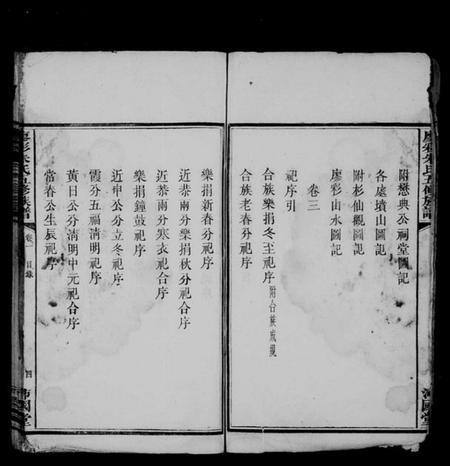 附懋典公祠堂圖記
各處墳山圖記
附杉仙觀圖記
廖彩山水圖記
卷三
祀序引
合族樂捐冬至祀序 附合族成規
合族老春分祀序
樂捐新春分祀序
近恭兩分樂捐秋分祀合序
近恭兩分寒衣祀合序
樂捐鐘鼓祀序
近申公分立冬祀序
霞分五福清明祀序
黃日公分清明中元祀合序
當春公生辰祀序
目錄
四
沛國堂